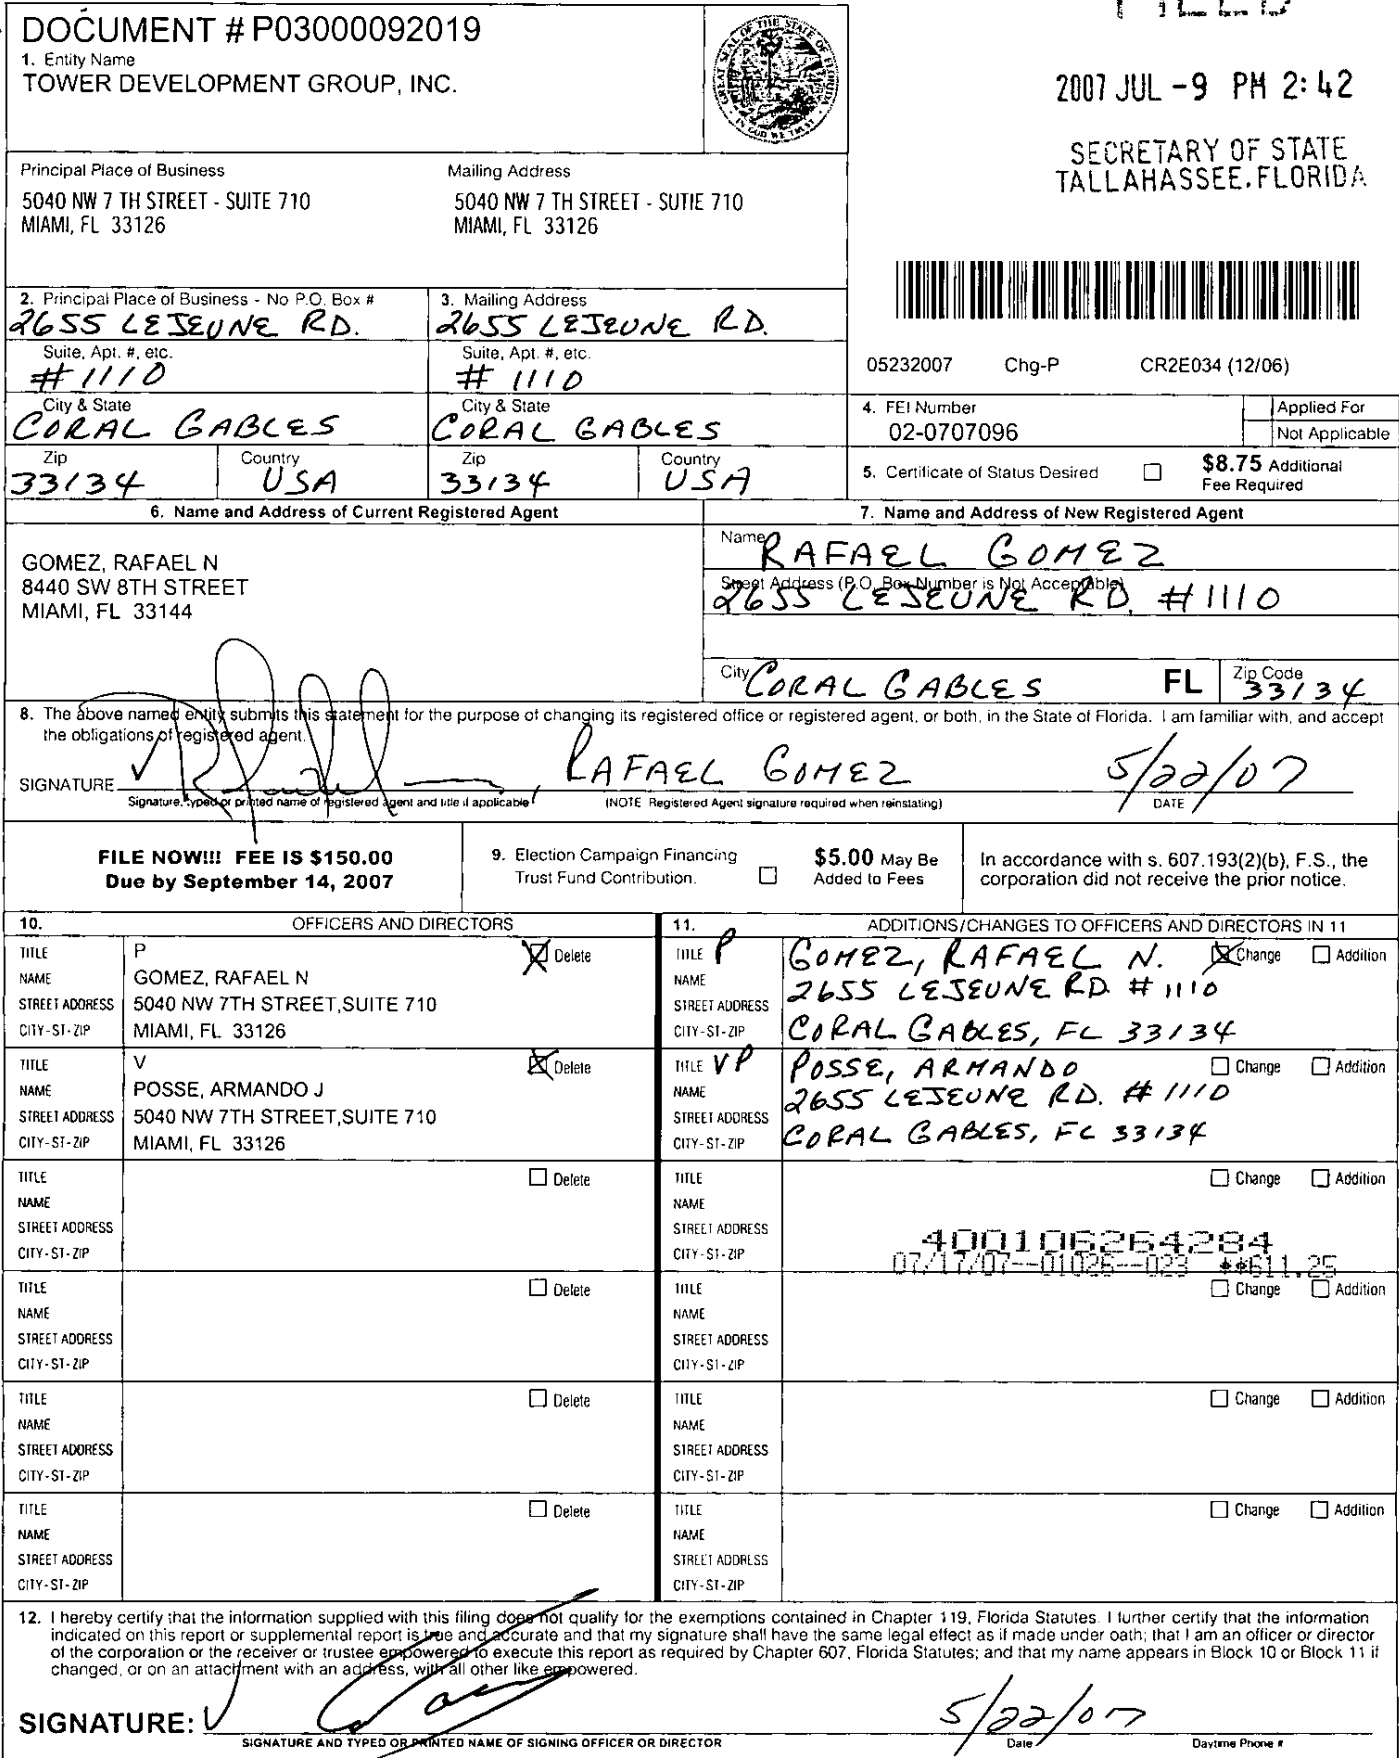 DOCUMENT # P03000092019
1. Entity Name
TOWER DEVELOPMENT GROUP, INC.
2007 JUL -9 PM 2:42
SECRETARY OF STATE
TALLAHASSEE, FLORIDA
Principal Place of Business
5040 NW 7 TH STREET - SUITE 710
MIAMI, FL 33126
Mailing Address
5040 NW 7 TH STREET - SUTIE 710
MIAMI, FL 33126
2. Principal Place of Business - No P.O. Box #
2655 LEJEUNE RD.
3. Mailing Address
2655 LEJEUNE RD.
Suite, Apt. #, etc.
#1110
Suite, Apt. #, etc.
# 1110
City & State
CORAL GABLES
City & State
CORAL GABLES
Zip
33134
Country
USA
Zip
33134
Country
USA
05232007 Chg-P CR2E034 (12/06)
4. FEI Number
02-0707096
Applied For
Not Applicable
5. Certificate of Status Desired
$8.75 Additional
Fee Required
6. Name and Address of Current Registered Agent
GOMEZ, RAFAEL N
8440 SW 8TH STREET
MIAMI, FL 33144
7. Name and Address of New Registered Agent
Name
RAFAEL GOMEZ
Street Address (P.O. Box Number is Not Acceptable)
2655 LEJEUNE RD. #1110
City CORAL GABLES FL Zip Code 33134
8. The above named entity submits this statement for the purpose of changing its registered office or registered agent, or both, in the State of Florida. I am familiar with, and accept
the obligations of registered agent.
SIGNATURE RAFAEL GOMEZ 5/22/07
Signature, typed or printed name of registered agent and title if applicable (NOTE Registered Agent signature required when reinstating) DATE
FILE NOW!!! FEE IS $150.00
Due by September 14, 2007
9. Election Campaign Financing
Trust Fund Contribution.
$5.00 May Be
Added to Fees
In accordance with s. 607.193(2)(b), F.S., the
corporation did not receive the prior notice.
10. OFFICERS AND DIRECTORS
TITLE P Delete
NAME GOMEZ, RAFAEL N
STREET ADDRESS 5040 NW 7TH STREET,SUITE 710
CITY-ST-ZIP MIAMI, FL 33126
TITLE V Delete
NAME POSSE, ARMANDO J
STREET ADDRESS 5040 NW 7TH STREET,SUITE 710
CITY-ST-ZIP MIAMI, FL 33126
TITLE Delete
NAME
STREET ADDRESS
CITY-ST-ZIP
TITLE Delete
NAME
STREET ADDRESS
CITY-ST-ZIP
TITLE Delete
NAME
STREET ADDRESS
CITY-ST-ZIP
TITLE Delete
NAME
STREET ADDRESS
CITY-ST-ZIP
11. ADDITIONS/CHANGES TO OFFICERS AND DIRECTORS IN 11
TITLE P GOMEZ, RAFAEL N. Change Addition
NAME
STREET ADDRESS 2655 LEJEUNE RD. #1110
CITY-ST-ZIP CORAL GABLES, FL 33134
TITLE VP POSSE, ARMANDO Change Addition
NAME 2655 LEJEUNE RD. #1110
STREET ADDRESS
CITY-ST-ZIP CORAL GABLES, FL 33134
TITLE Change Addition
NAME
STREET ADDRESS 400106264284
CITY-ST-ZIP 07/17/07--01026--023 **611.25
TITLE Change Addition
NAME
STREET ADDRESS
CITY-ST-ZIP
TITLE Change Addition
NAME
STREET ADDRESS
CITY-ST-ZIP
TITLE Change Addition
NAME
STREET ADDRESS
CITY-ST-ZIP
12. I hereby certify that the information supplied with this filing does not qualify for the exemptions contained in Chapter 119, Florida Statutes. I further certify that the information
indicated on this report or supplemental report is true and accurate and that my signature shall have the same legal effect as if made under oath; that I am an officer or director
of the corporation or the receiver or trustee empowered to execute this report as required by Chapter 607, Florida Statutes; and that my name appears in Block 10 or Block 11 if
changed, or on an attachment with an address, with all other like empowered.
SIGNATURE: 5/22/07
SIGNATURE AND TYPED OR PRINTED NAME OF SIGNING OFFICER OR DIRECTOR Date Daytime Phone #